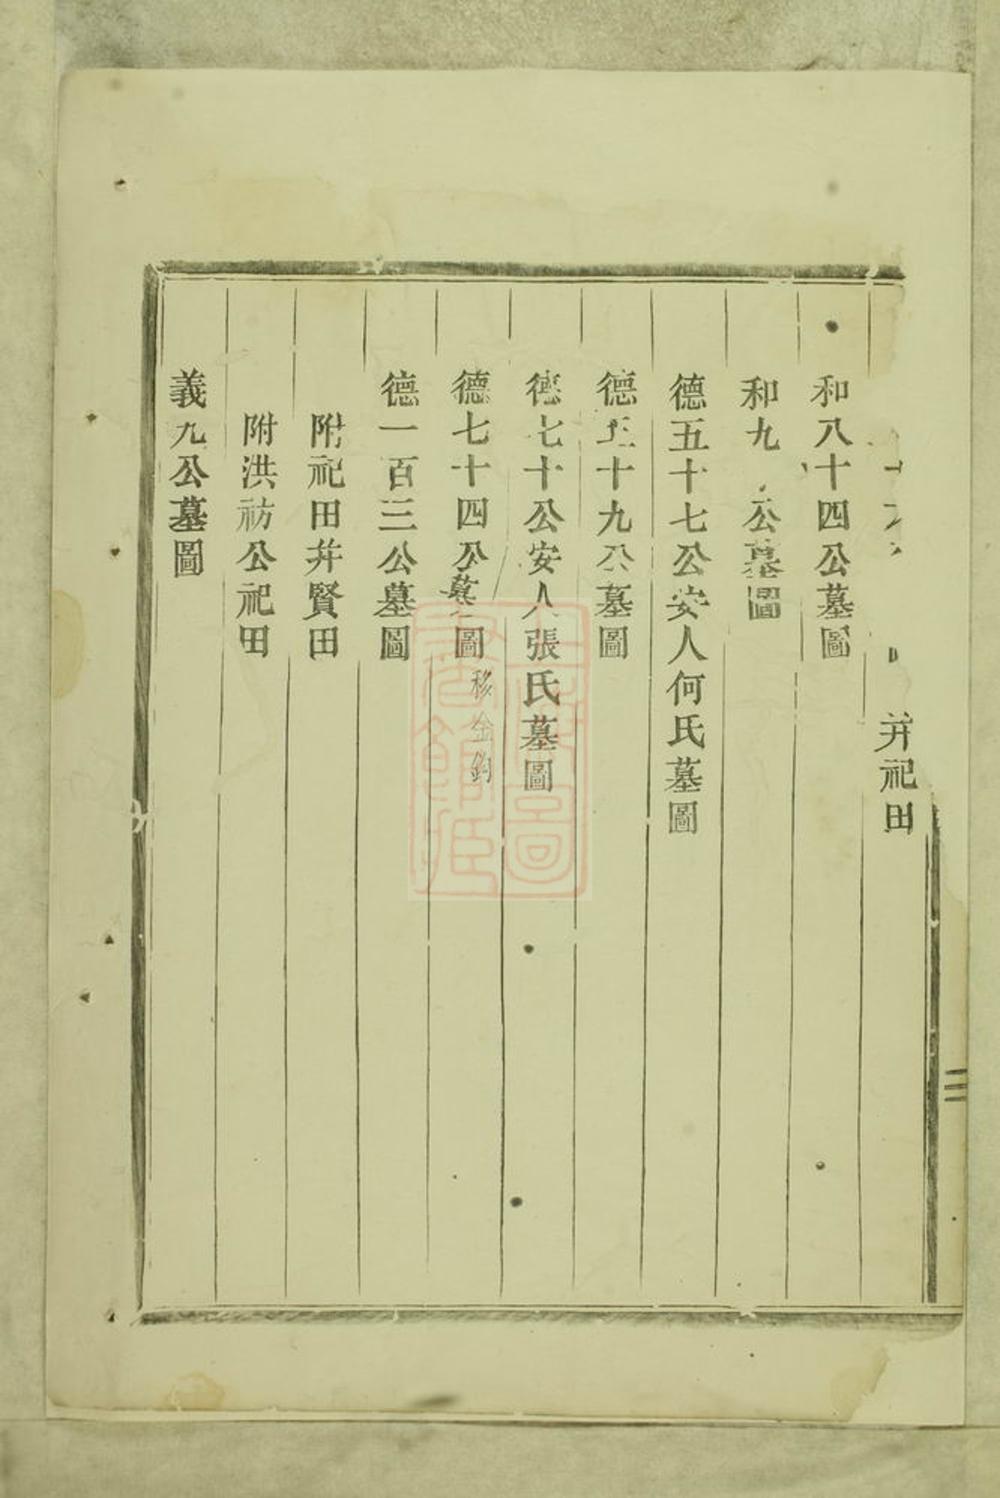 十并祀田
和八十四公墓圖
和九公墓圖
德五十七公安人何氏墓圖
德五十九公墓圖
德七十公安人張氏墓圖
德七十四公墓圖 移金鈞
德一百三公墓圖
附祀田并賢田
附洪祊公祀田
義九公墓圖
三
上海圖書館藏